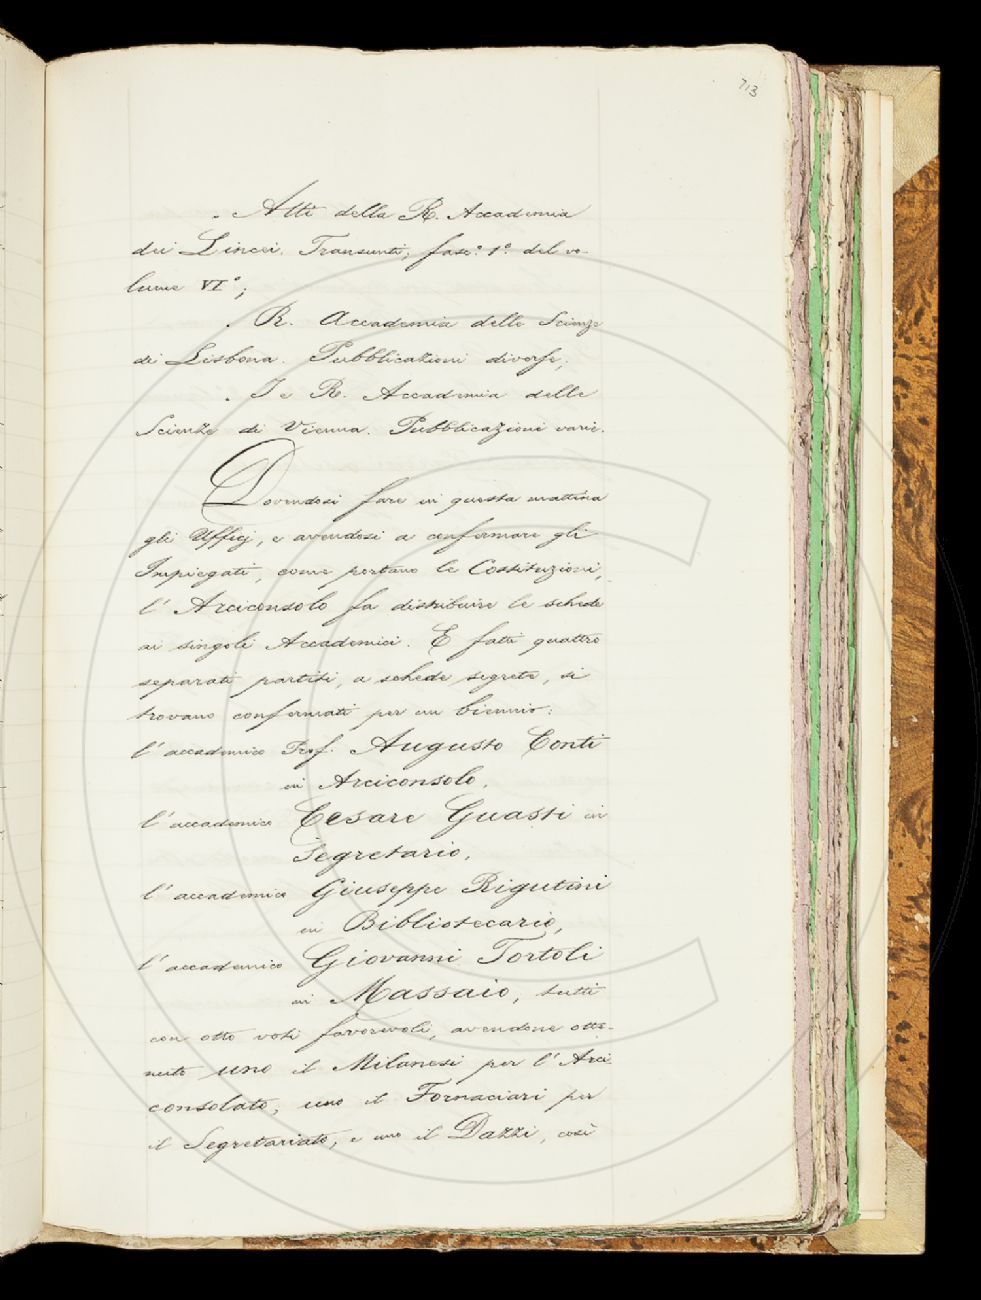 713
. Atti della R. Accademia
dei Lincei. Transunti; fasc.° 1°. del vo-
lume VI°;
. R. Accademia delle Scienze
di Lisbona. Pubblicazioni diverse;
. I e R. Accademia delle
Scienze di Vienna. Pubblicazioni varie.
Dovendosi fare in questa mattina
gli Ufficj, e avendosi a confermare gli
Impiegati, come portano le Costituzioni,
l'Arciconsolo fa distribuire le schede
ai singoli Accademici. E fatti quattro
separati partiti, a schede segrete, si
trovano confermati per un biennio:
l'accademico Prof. Augusto Conti
in Arciconsolo,
l'accademico Cesare Guasti in
Segretario,
l'accademico Giuseppe Rigutini
in Bibliotecario,
l'accademico Giovanni Tortoli
in Massaio, tutti
con otto voti favorevoli, avendone otte-
nuto uno il Milanesi per l'Arci
consolato, uno il Fornaciari per
il Segretariato, e uno il Dazzi, così